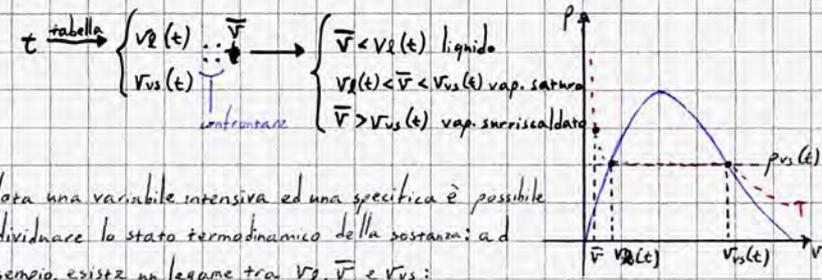 t tabella → { vl(t) v̄ → { v̄ < vl(t) liquido
vvs(t) vl(t) < v̄ < vvs(t) vap. saturo
confrontare v̄ > vvs(t) vap. surriscaldato
p
pvs(t)
T
v̄ vl(t) vvs(t) v
ota una variabile intensiva ed una specifica è possibile
dividuare lo stato termodinamico della sostanza: ad
sempio esiste un legame tra vl, v̄ e vvs: